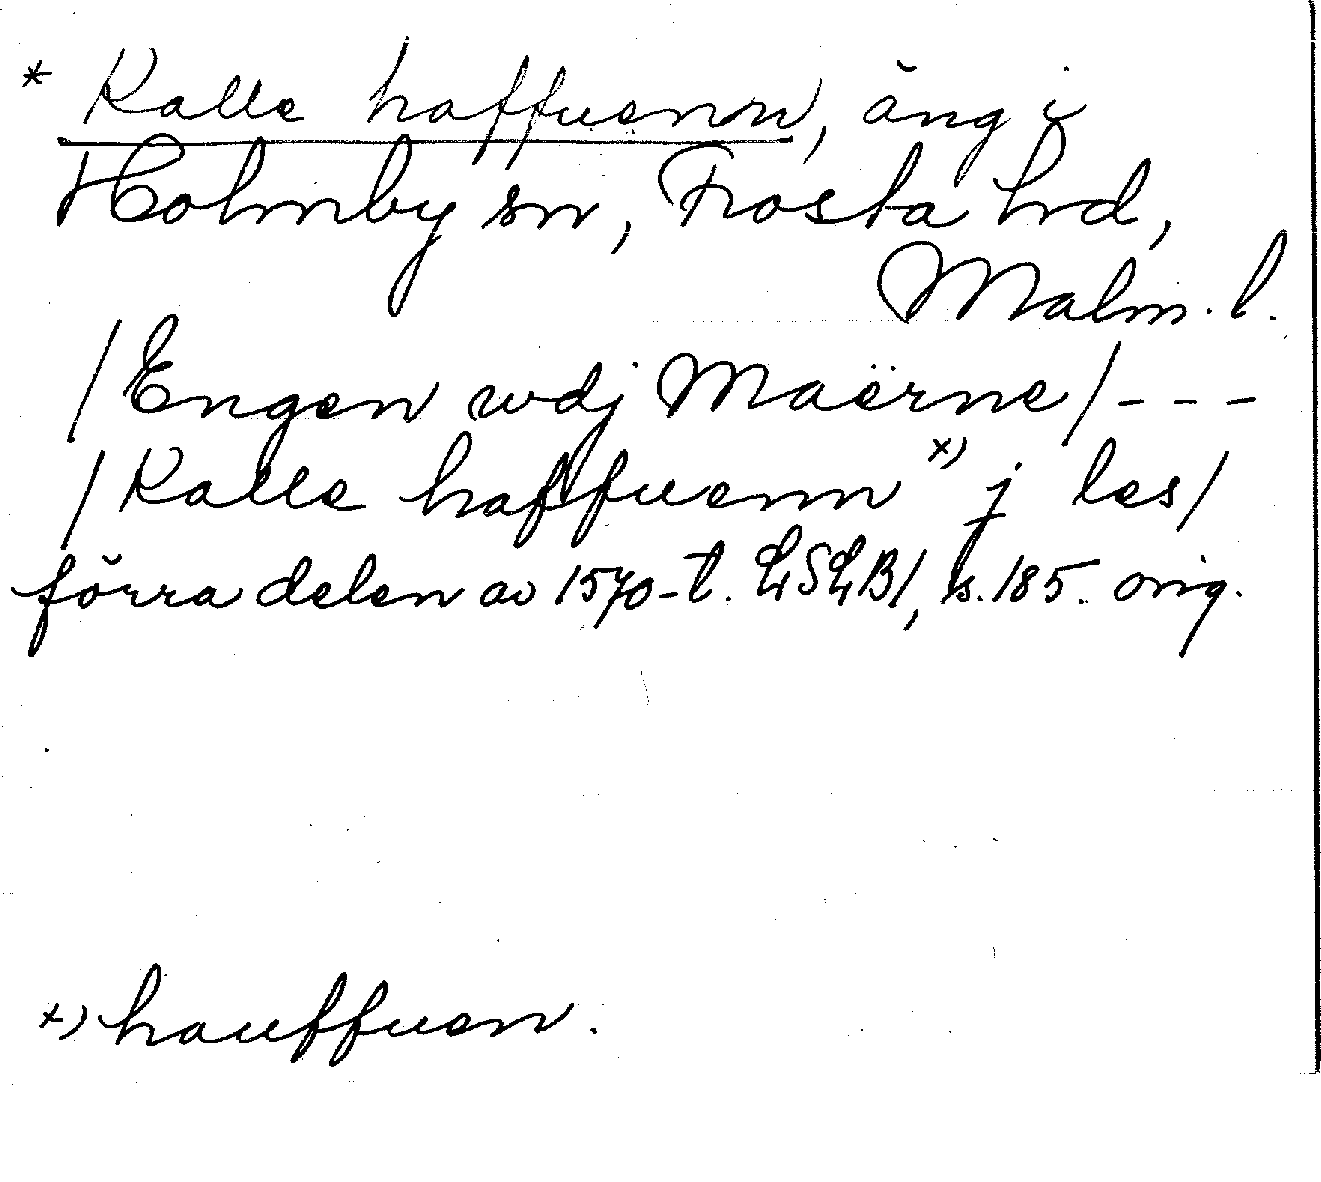 * Kalle haffuenn, äng i
Holmby sn, Frosta hrd,
Malm. l.
/Engen wdj Maërne/---
/Kalle haffuenn x) j les/
förra delen av 1570-t. LSLB1, s. 185. orig.
x) hauffuen.